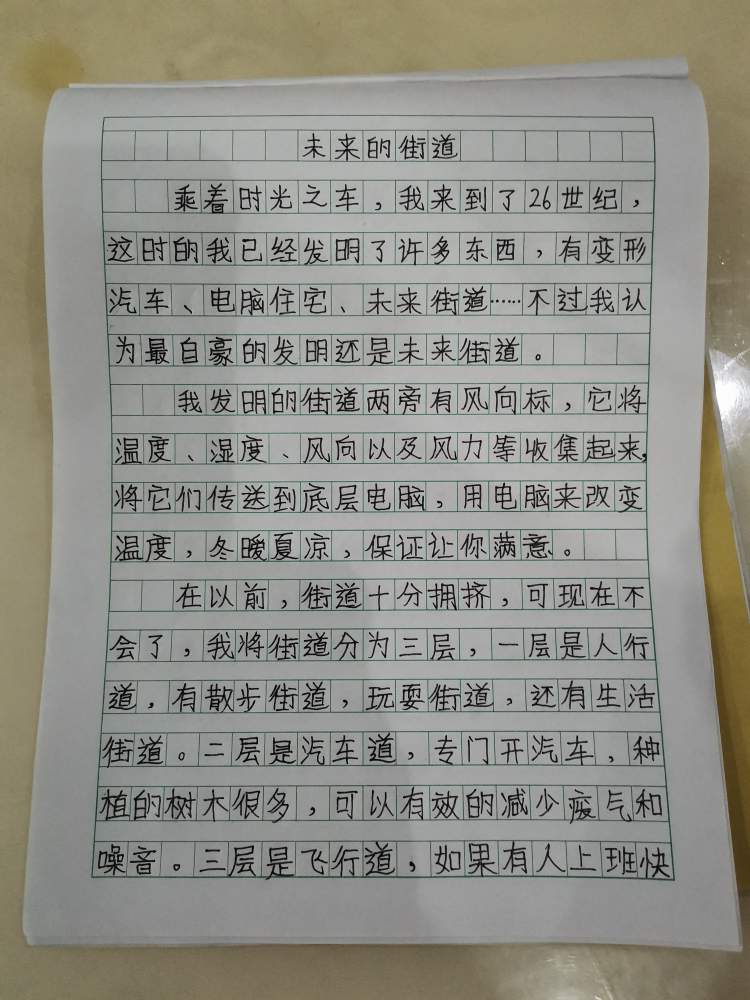 未来的街道
乘着时光之车，我来到了26世纪，
这时的我已经发明了许多东西，有变形
汽车、电脑住宅、未来街道……不过我认
为最自豪的发明还是未来街道。
我发明的街道两旁有风向标，它将
温度、湿度、风向以及风力等收集起来，
将它们传送到底层电脑，用电脑来改变
温度，冬暖夏凉，保证让你满意。
在以前，街道十分拥挤，可现在不
会了，我将街道分为三层，一层是人行
道，有散步街道，玩耍街道，还有生活
街道。二层是汽车道，专门开汽车，种
植的树木很多，可以有效的减少废气和
噪音。三层是飞行道，如果有人上班快